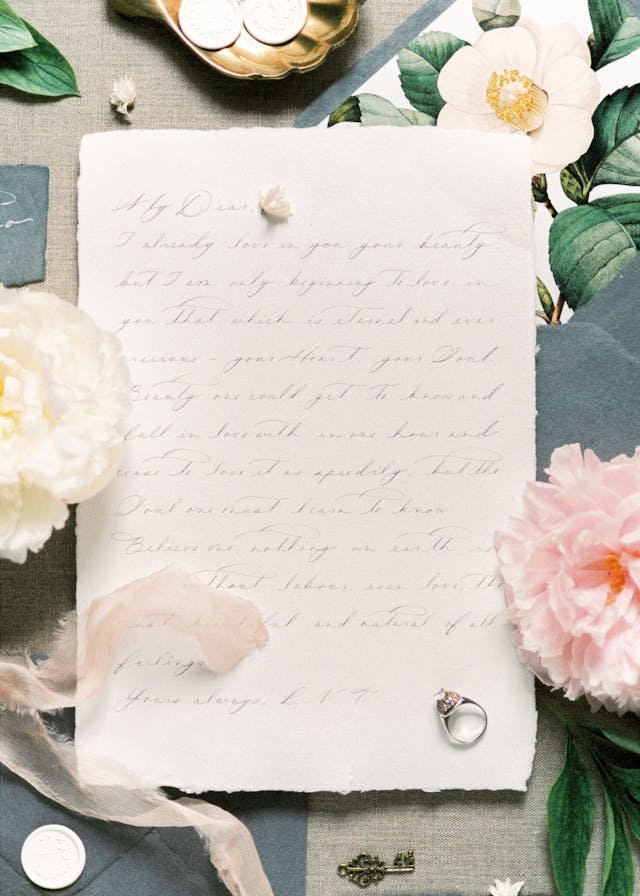 My Dear,
I already love in you your beauty,
but I am only beginning to love in
you that which is eternal and ever
precious - your Heart, your Soul.
Beauty one could get to know and
fall in love with in one hour and
cease to love it as speedily, but the
Soul one must learn to know
Believe me, nothing on earth is
without labour, even love, the
most beautiful and natural of all
feelings
Yours always, L V T